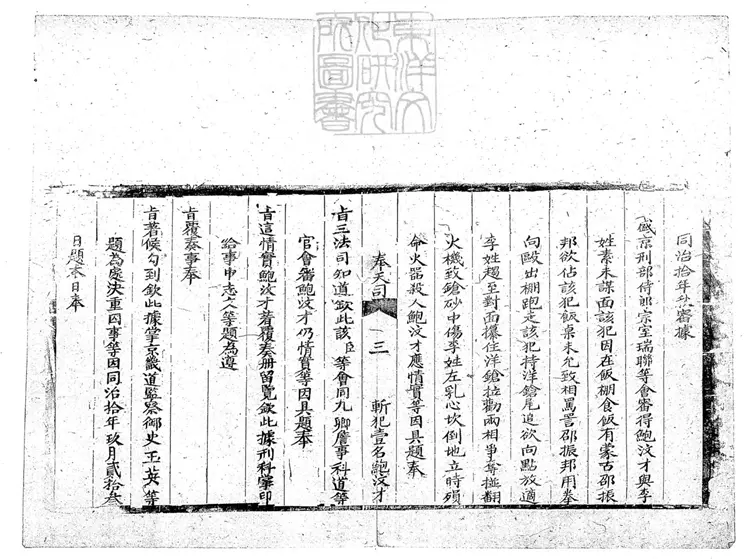 東洋文
化研究
所圖書
同治拾年秋審據
盛京刑部侍郎宗室瑞聯等會審得鮑汶才與李
姓素未謀面該犯因在飯棚食飯有蒙古邵振
邦欲佔該犯飯桌未允致相罵詈邵振邦用拳
向毆出棚跑走該犯持洋鎗尾追欲向點放適
李姓趕至對面攥住洋鎗拉勸兩相爭奪碰翻
火機致鎗砂中傷李姓左乳心坎倒地立時殞
命火器殺人鮑汶才應情實等因具題奉
奉天司
三
斬犯壹名鮑汶才
旨三法司知道欽此該臣等會同九卿詹事科道等
官會審鮑汶才仍情實等因具題奉
旨這情實鮑汶才著覆奏冊留覽欽此據刑科掌印
給事中志文等題為遵
旨覆奏事奉
旨著候勾到欽此據掌京畿道監察御史王英等
題為處決重囚事等因同治拾年玖月貳拾叁
日題本日奉